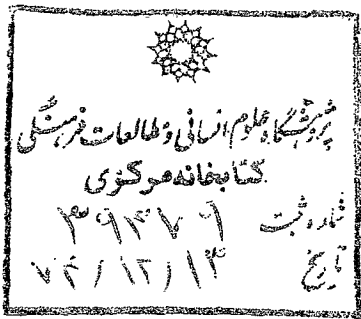 پژوهشگاه علوم انسانی و مطالعات فرهنگی
کتابخانه مرکزی
شماره ثبت ۳۹۴۷۶
تاریخ ۷۴/۱۲/۱۳